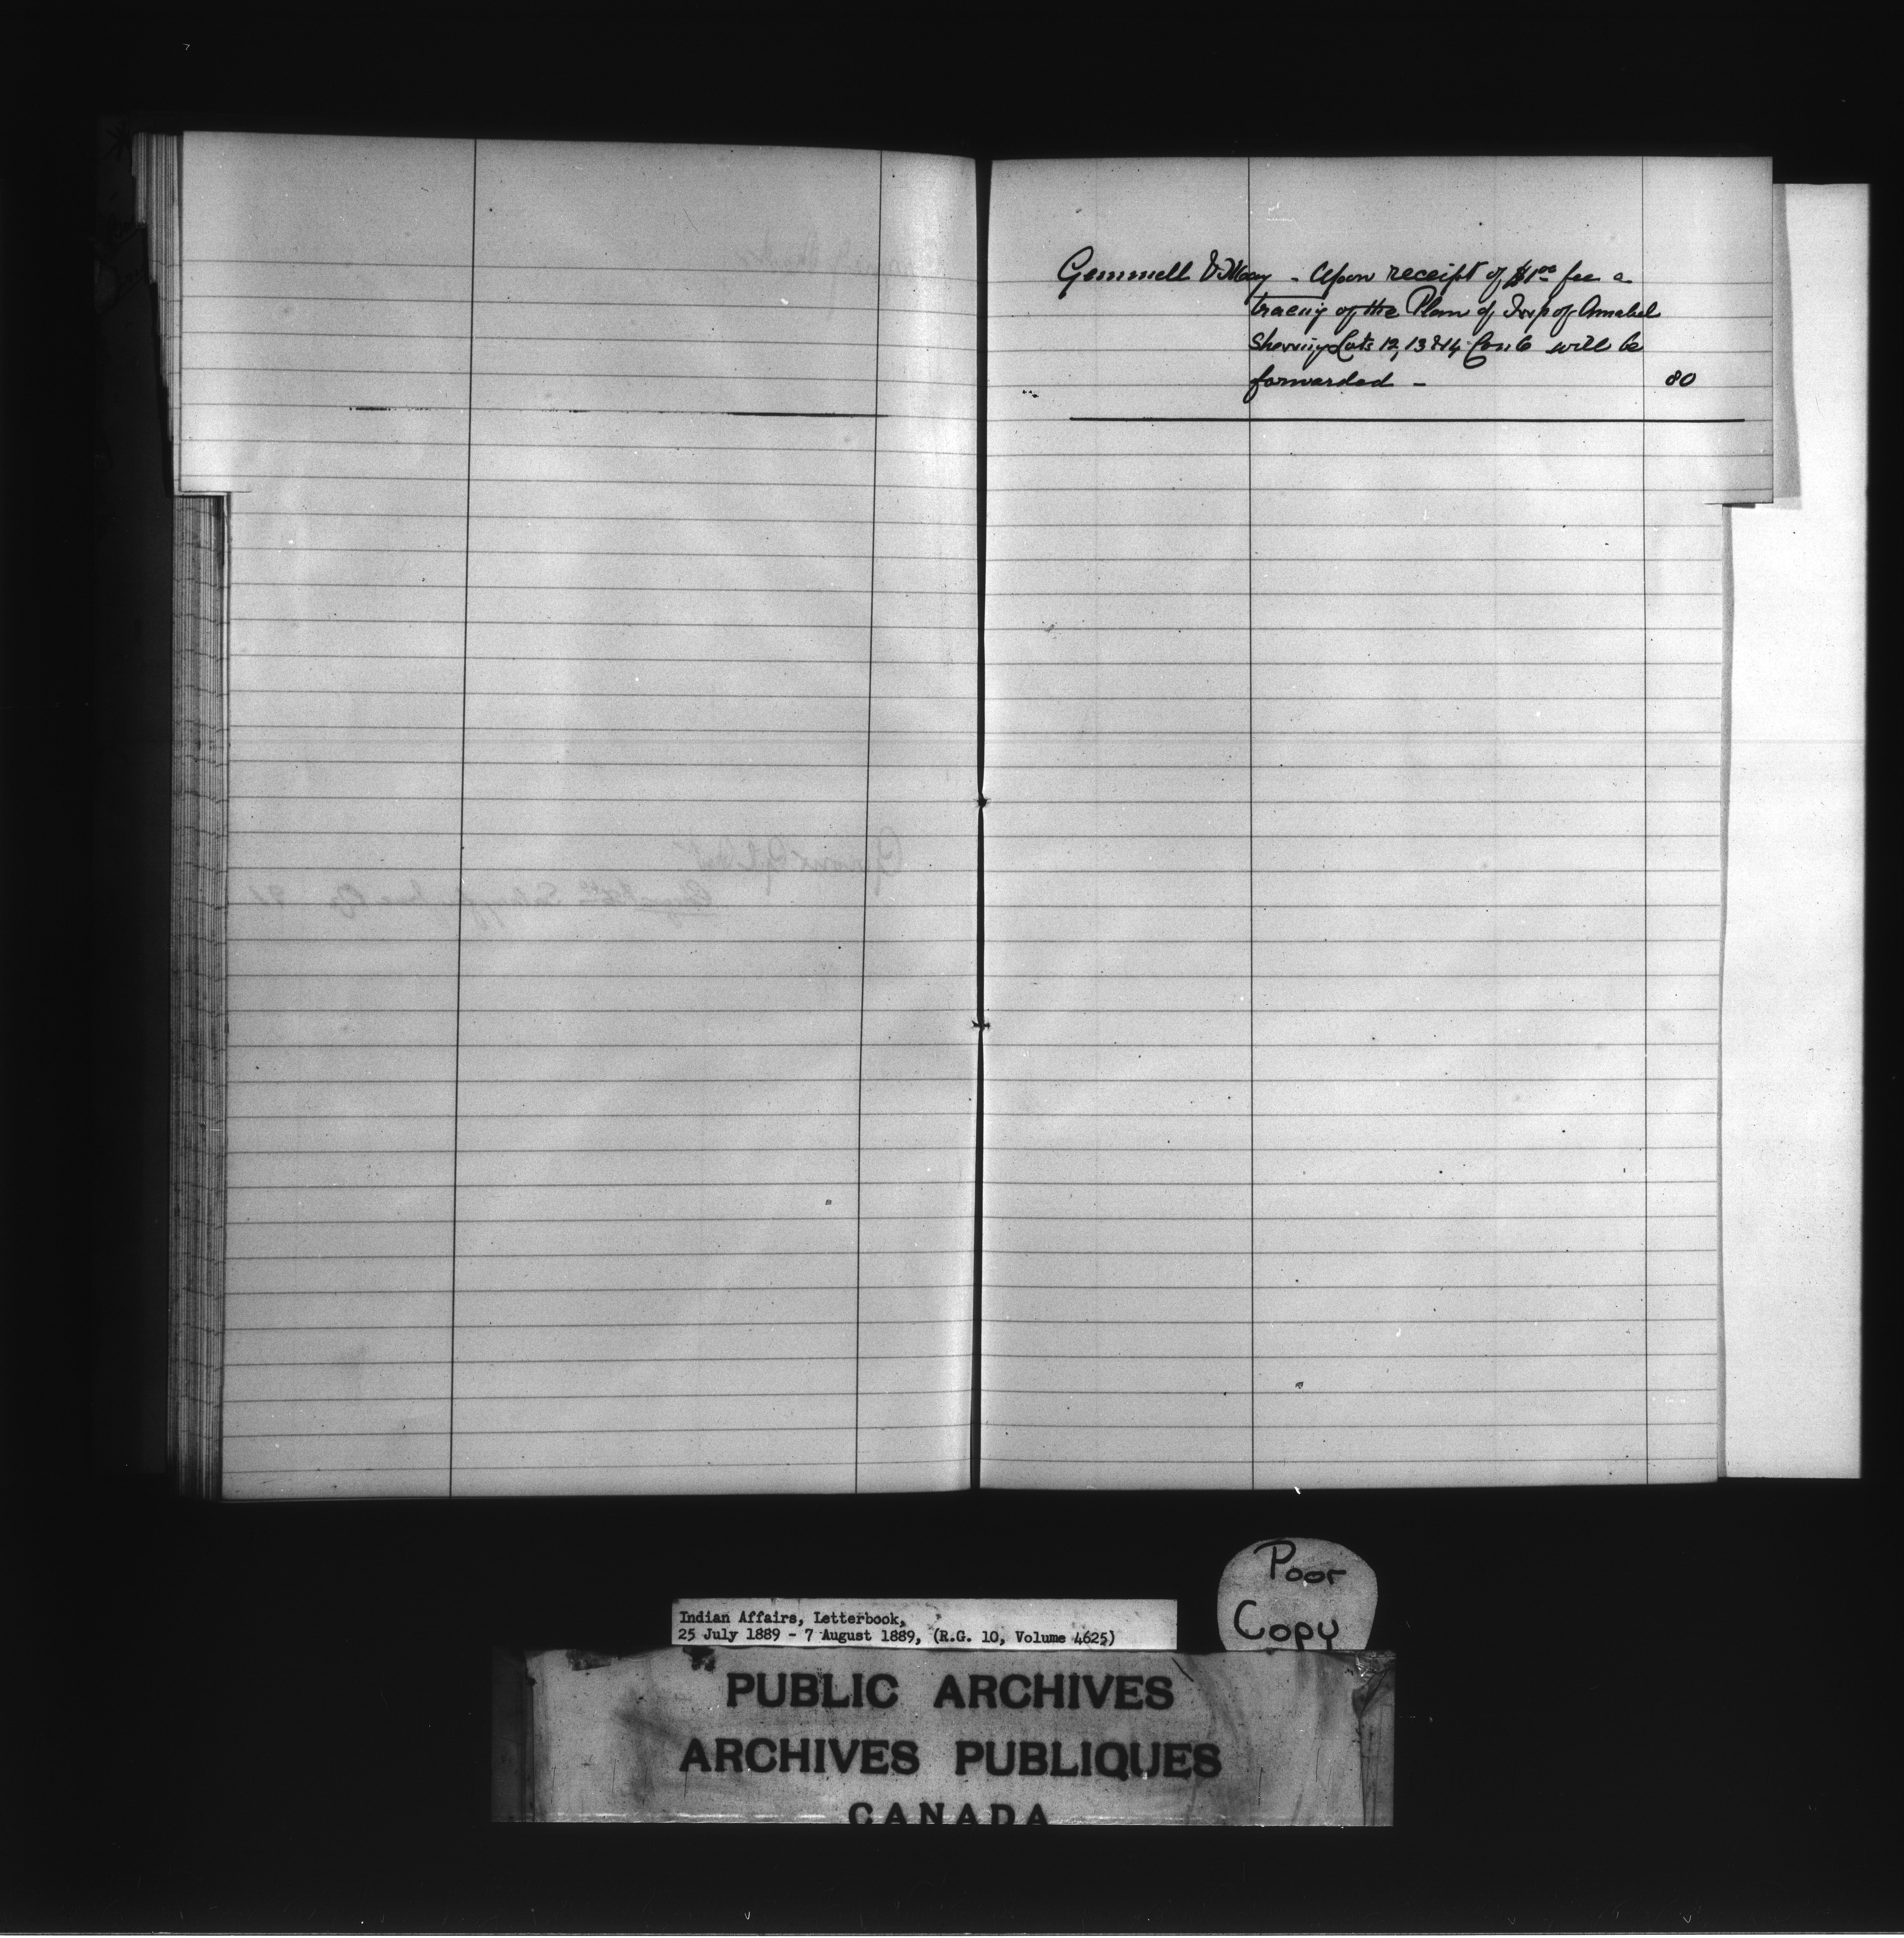 Gemmell & May - Upon receipt of $1.00 fee a
tracing of the Plan of Twp of Amabel
Showing Lots 12, 13 & 14 Con 6 will be
forwarded - 80
Poor
Copy
Indian Affairs, Letterbook,
25 July 1889 - 7 August 1889, (R.G. 10, Volume 4625)
PUBLIC ARCHIVES
ARCHIVES PUBLIQUES
CANADA